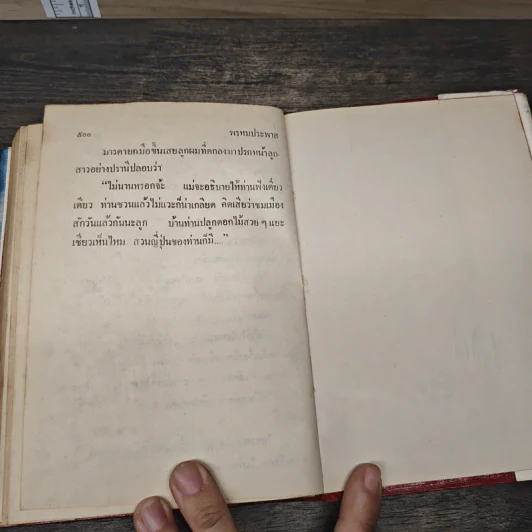 ๕๐๐ พรหมประพาส
มารดายกมือขึ้นเสยลูกผมที่ตกลงมาปรกหน้าลูก
สาวอย่างปรานีปลอบว่า
“ไม่นานหรอกจ้ะ แม่จะอธิบายให้ท่านฟังเดี๋ยว
เดียว ท่านชวนแล้วไม่แวะก็น่าเกลียด คิดเสียว่าชมเมือง
สักวันแล้วกันนะลูก บ้านท่านปลูกดอกไม้สวย ๆ แยะ
เชียวเห็นไหม สวนญี่ปุ่นของท่านก็มี....”